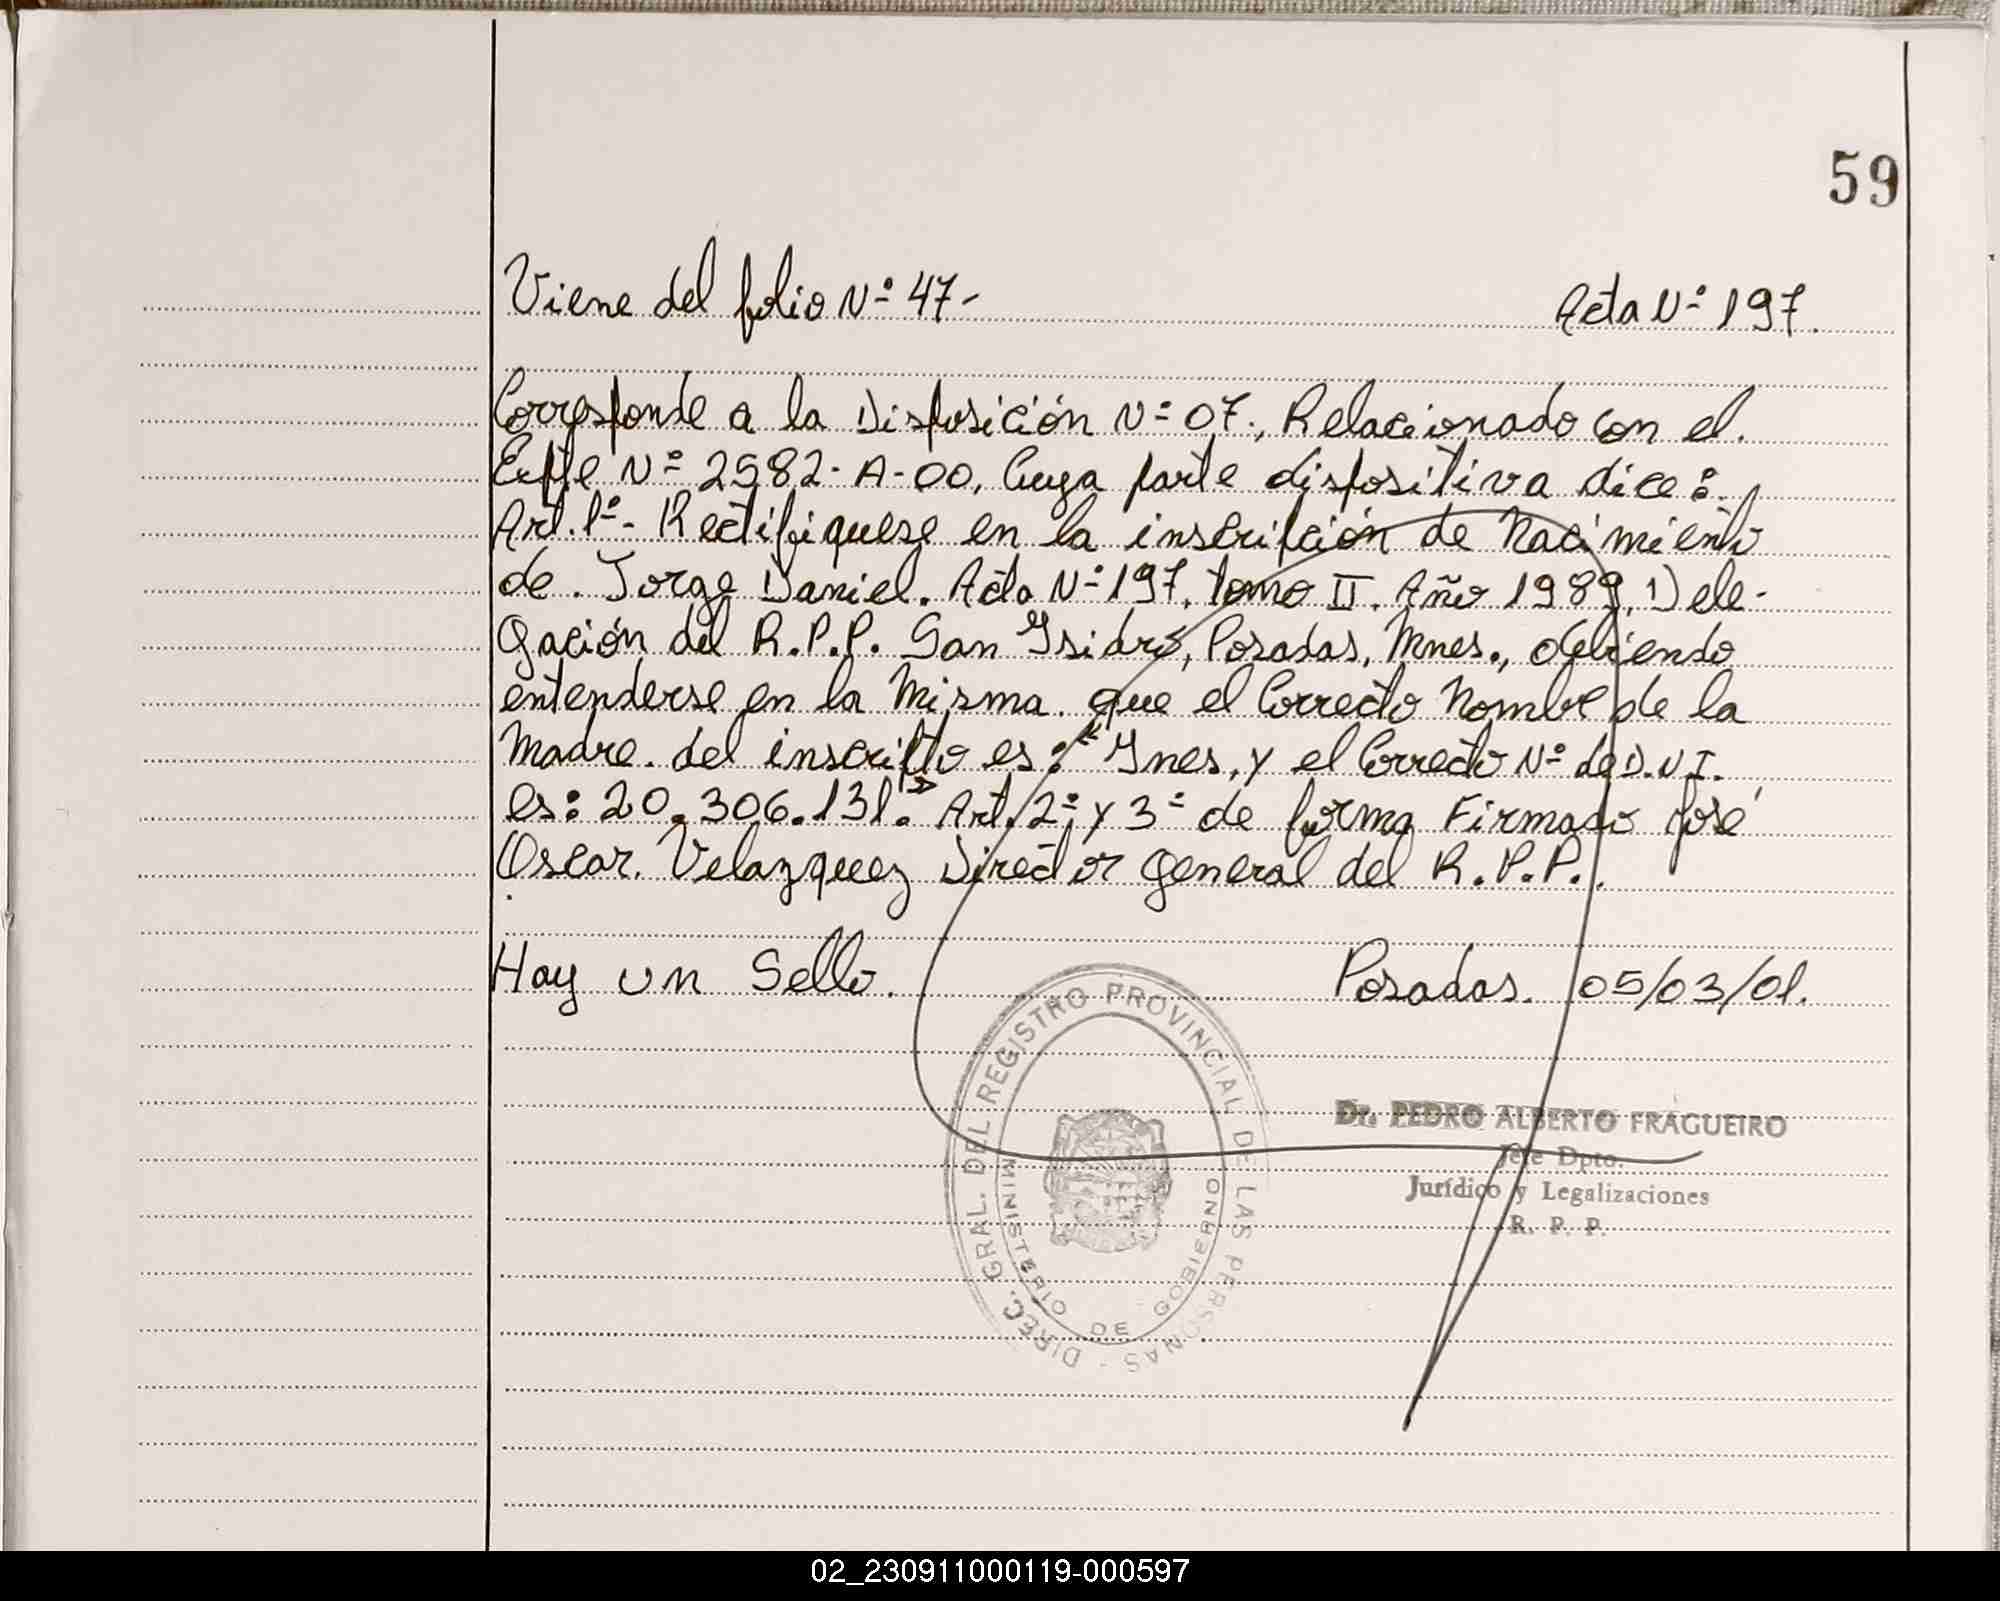 59
Viene del folio Nº 47-
Acta Nº 197.
Corresponde a la Disposición Nº 07., Relacionado con el.
Expte Nº 2582-A-00, Cuya parte dispositiva dice:.
Art. 1º- Rectifiquese en la inscripción de Nacimiento
de. Jorge Daniel. Acta Nº 197, tomo II. Año 1989, Dele-
gación del R.P.P. San Ysidro, Posadas, Mnes., debiendo
entenderse en la Misma. que el Correcto Nombre de la
Madre. del inscripto es: "Ynes, y el Correcto Nº de D.N I.
es: 20.306.131." Art. 2º y 3º de forma Firmado José
Oscar. Velazquez Director General del R.P.P..
Hay un Sello.
Posadas. 05/03/01.
DIREC. GRAL. DEL REGISTRO PROVINCIAL DE LAS PERSONAS -
MINISTERIO DE GOBIERNO
Dr. PEDRO ALBERTO FRAGUEIRO
Jefe Dpto.
Jurídico y Legalizaciones
R. P. P.
02_230911000119-000597